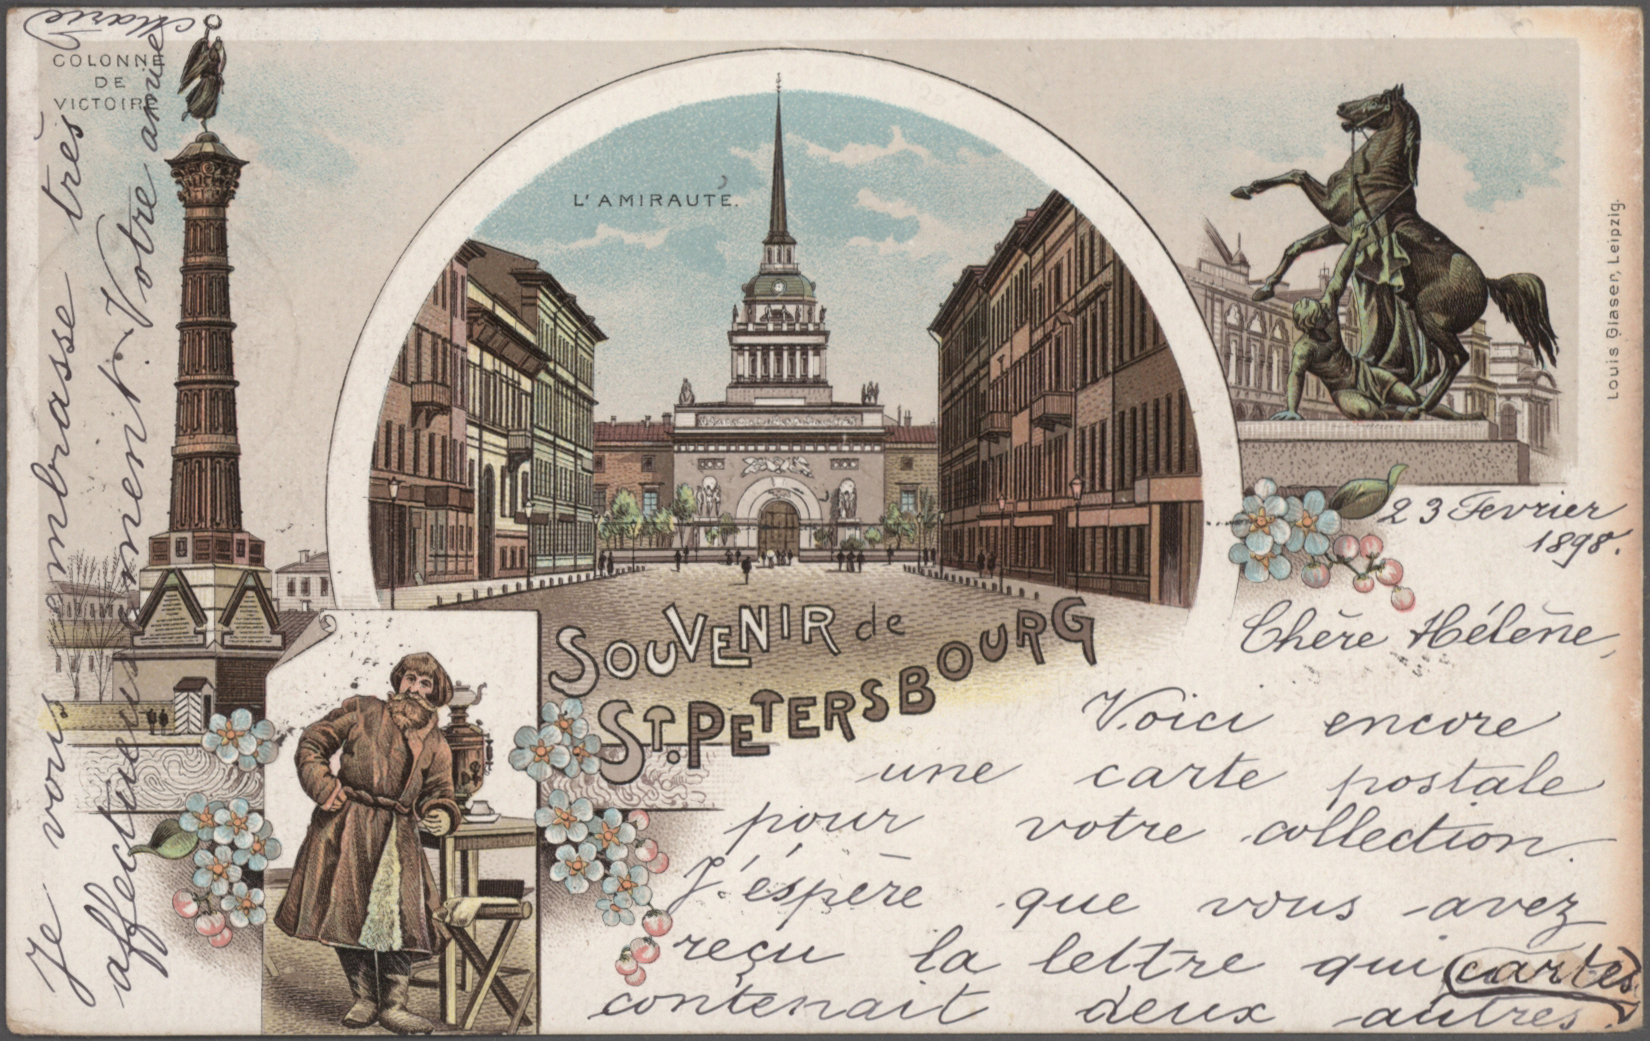 COLONNE
DE
VICTOIRE
L'AMIRAUTÉ.
Louis Glaser, Leipzig.
SOUVENIR de
ST. PETERSBOURG
23 Fevrier
1898.
Chère Hélène,
Voici encore
une carte postale
pour votre collection.
J'éspère que vous avez
reçu la lettre qui
contenait deux autres
cartes.
Je vous embrasse très
affectueusement. Votre amie
Marie